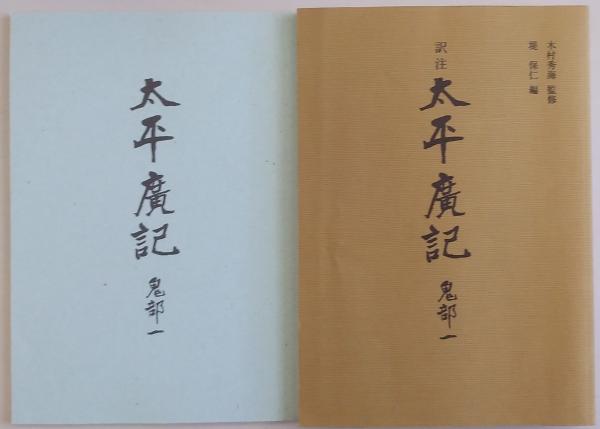 太平廣記
鬼部一
木村秀海 監修
堤 保仁 編
訳注
太平廣記
鬼部一